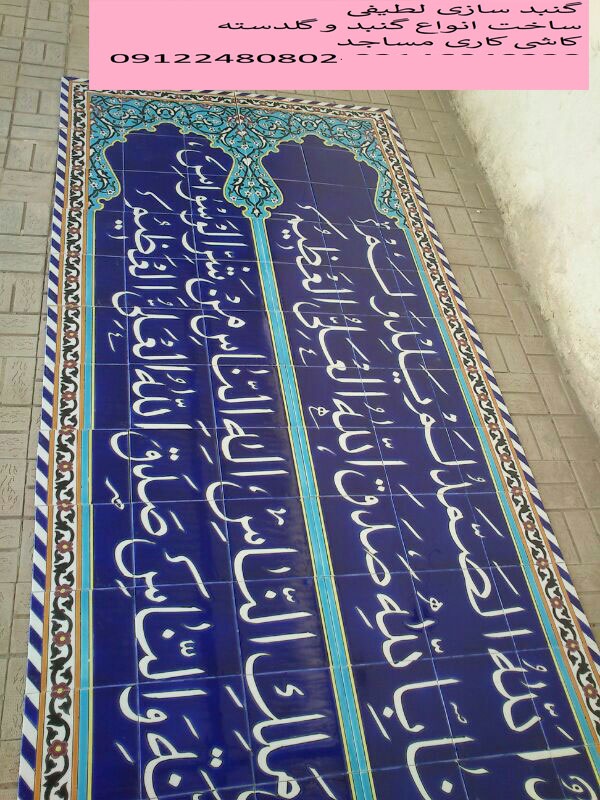 گنبد سازی لطیفی
ساخت انواع گنبد و گلدسته
کاشی کاری مساجد
09122480802
اَللّٰهُ الصَّمَدُ لَمْ یَلِدْ وَ لَمْ
بِاللّٰهِ صَدَقَ اللّٰهُ الْعَلِیُّ الْعَظیمُ
مَلِکِ النّٰاسِ اِلٰهِ النّٰاسِ مِنْ شَرِّ الْوَسْوٰاسِ
وَ النّٰاسِ صَدَقَ اللّٰهُ الْعَلِیُّ الْعَظیمُ